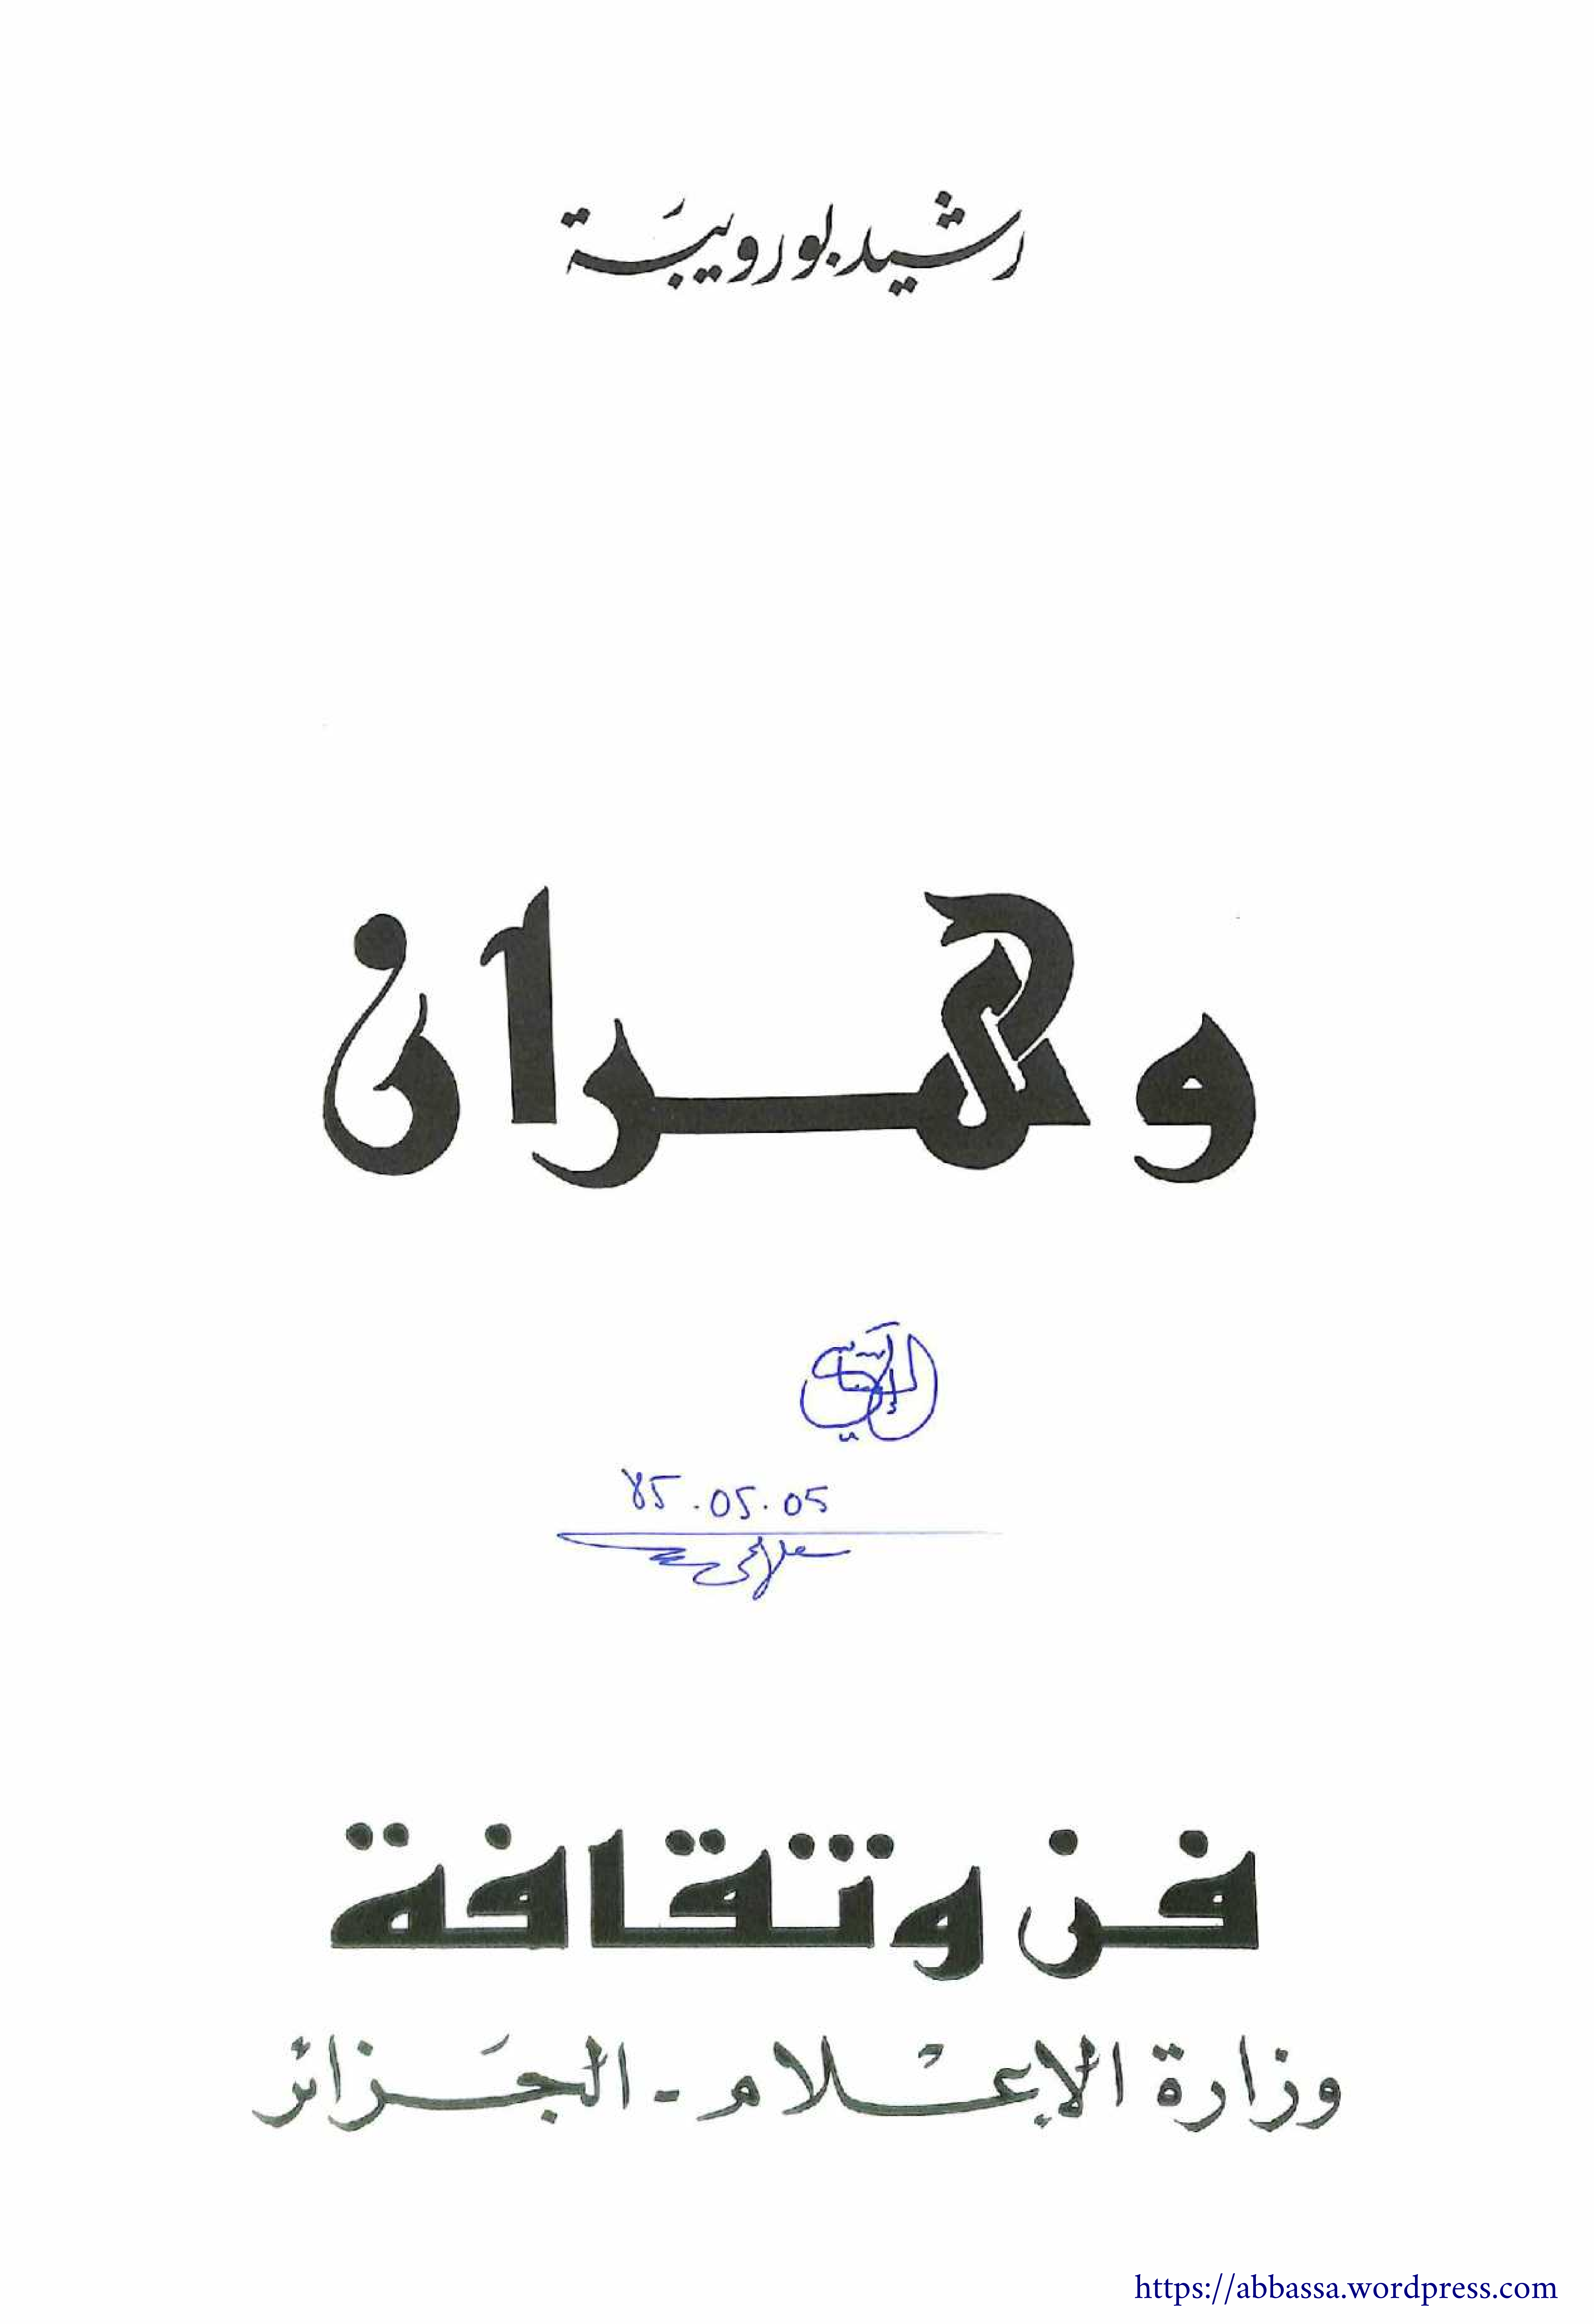 رشيد بورويبَة
وهران
85.05.05
فن وثقافة
وزارة الإعْلام - الجَزائر
https://abbassa.wordpress.com